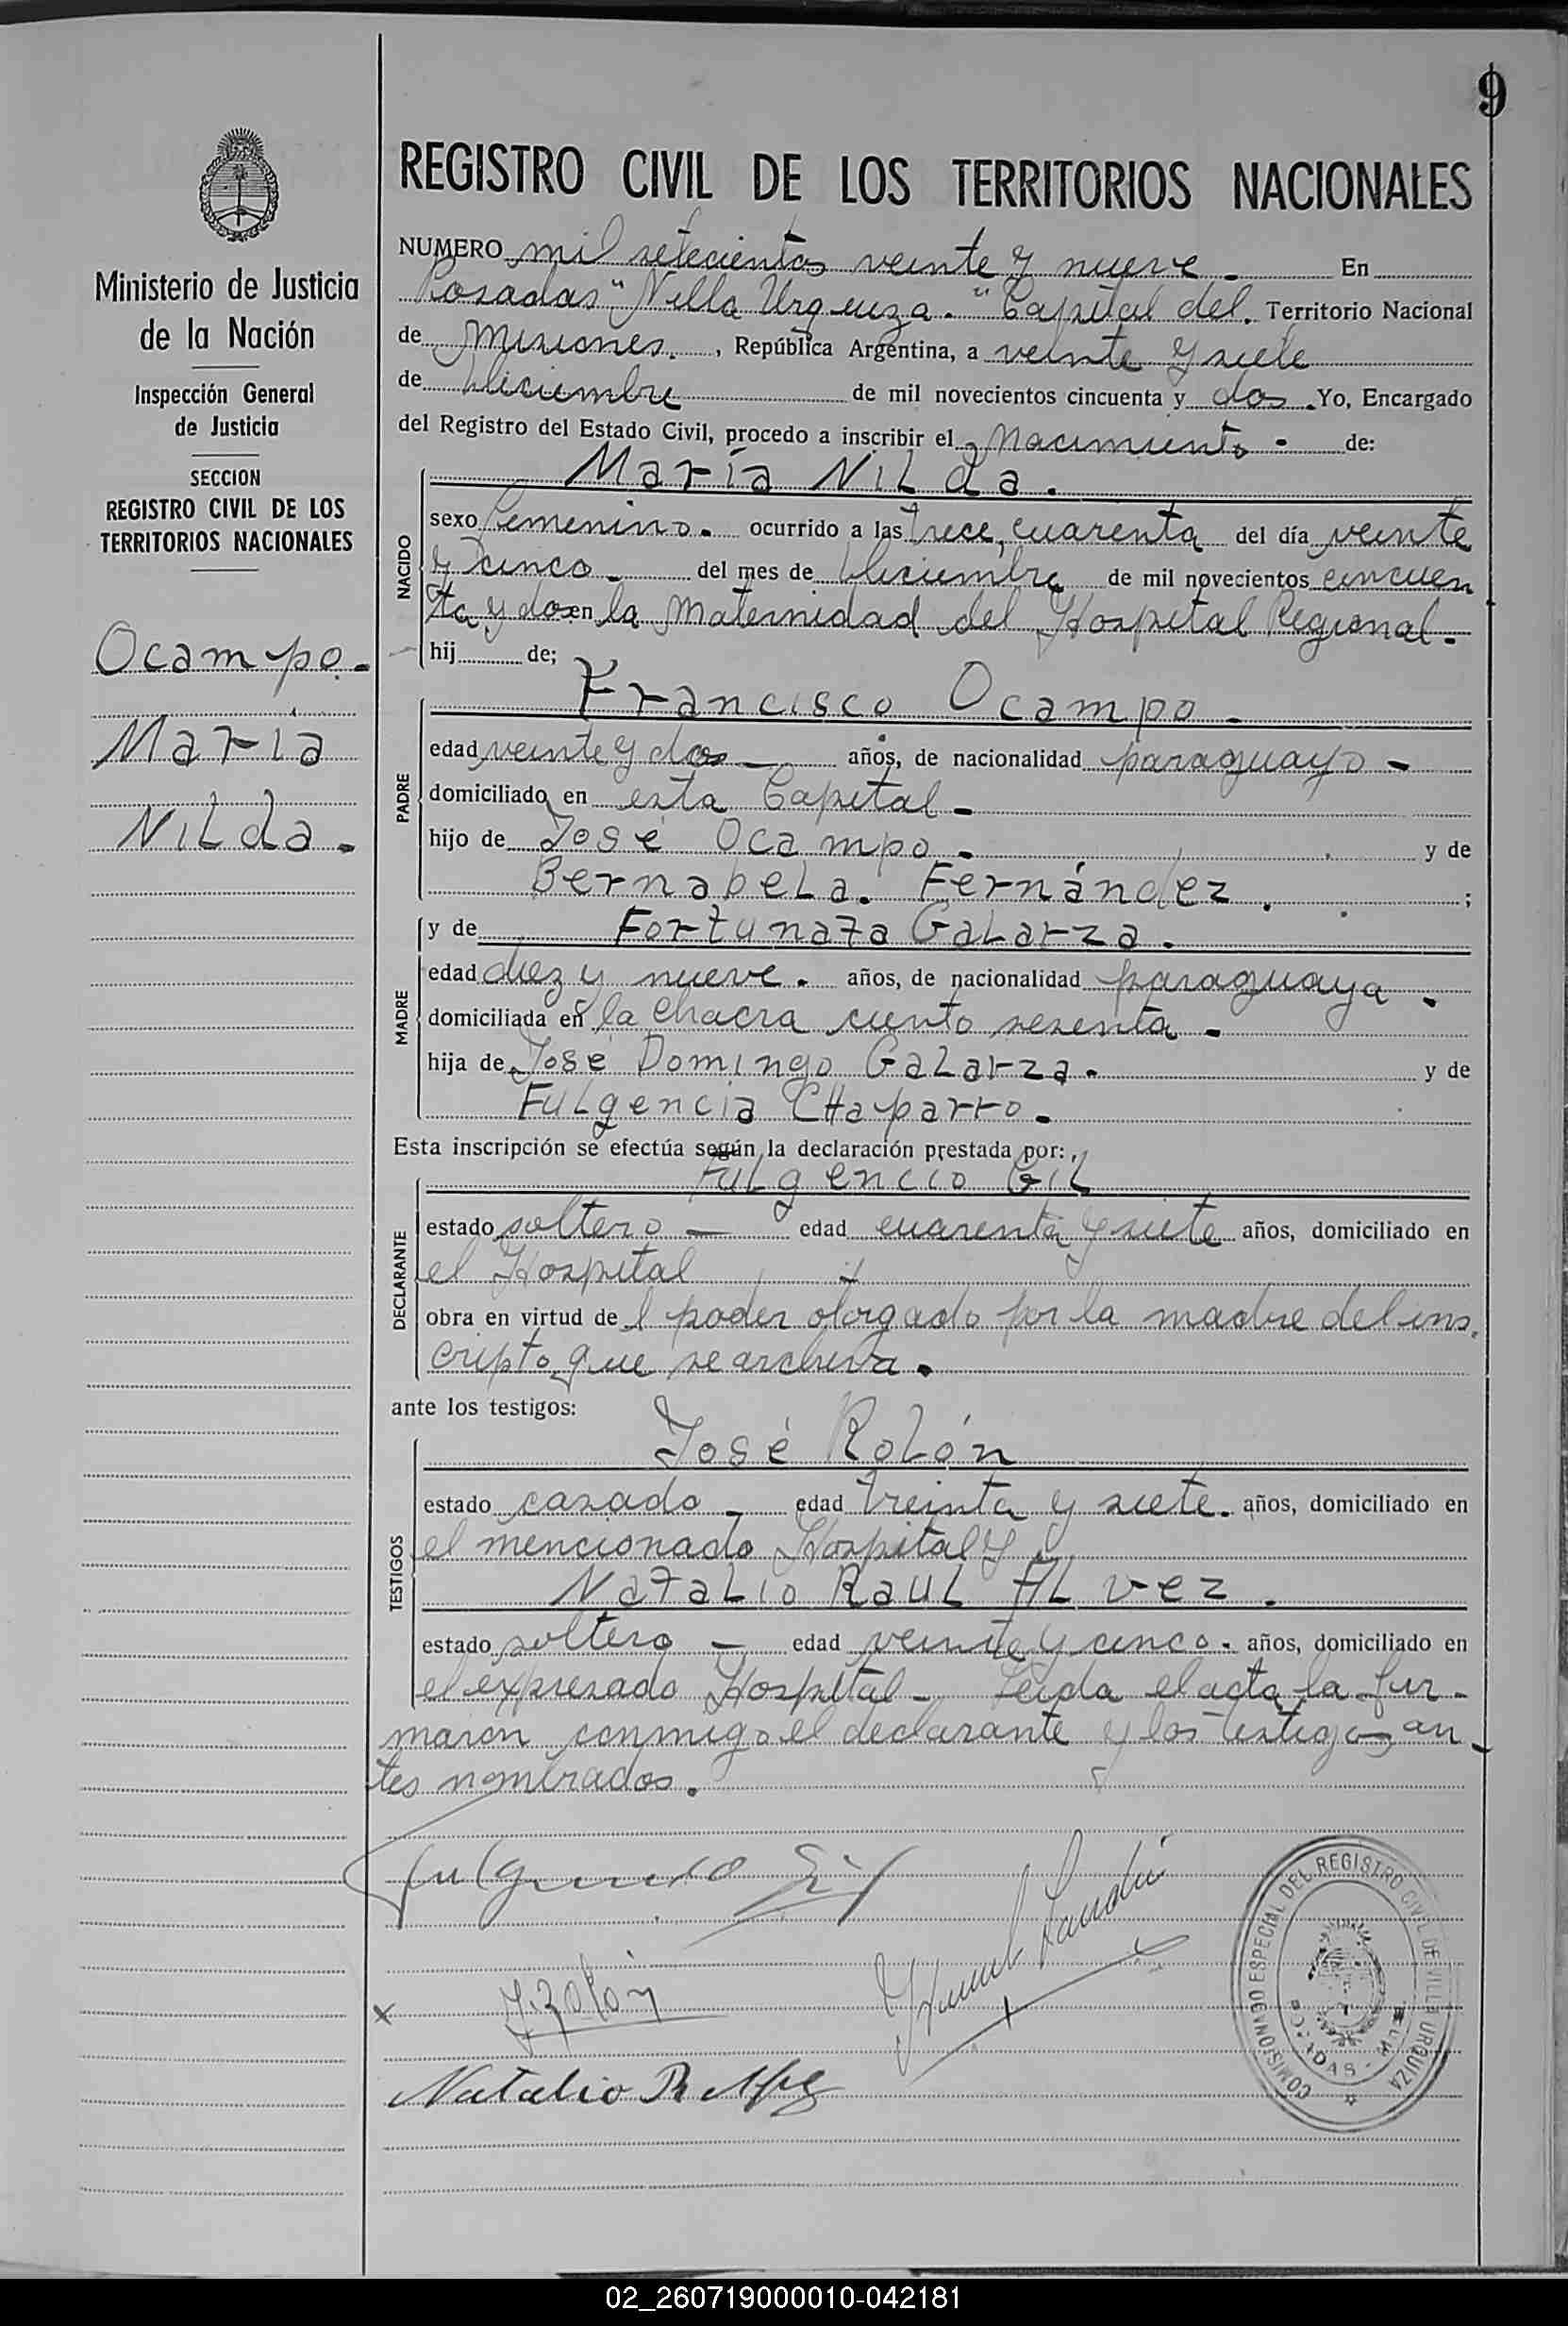 9
REGISTRO CIVIL DE LOS TERRITORIOS NACIONALES
Ministerio de Justicia
de la Nación
Inspección General
de Justicia
SECCION
REGISTRO CIVIL DE LOS
TERRITORIOS NACIONALES
Ocampo.
María
Nilda.
NUMERO mil setecientos veinte y nueve. En
Posadas "Villa Urquiza." Capital del. Territorio Nacional
de Misiones., República Argentina, a veinte y siete
de Diciembre de mil novecientos cincuenta y dos. Yo, Encargado
del Registro del Estado Civil, procedo a inscribir el Nacimiento - de:
María Nilda.
NACIDO
sexo femenino. ocurrido a las trece, cuarenta del día veinte
y cinco. del mes de Diciembre de mil novecientos cincuen
ta y dos en la Maternidad del Hospital Regional.
hij de;
Francisco Ocampo -
PADRE
edad veinte y dos - años, de nacionalidad paraguayo -
domiciliado en esta Capital -
hijo de José Ocampo - y de
Bernabela. Fernández. ;
MADRE
y de Fortunata Galarza.
edad diez y nueve. años, de nacionalidad paraguaya.
domiciliada en la chacra ciento sesenta -
hija de José Domingo Galarza. y de
Fulgencia Chaparro.
Esta inscripción se efectúa según la declaración prestada por:
Fulgencio Gil
DECLARANTE
estado soltero - edad cuarenta y siete años, domiciliado en
el Hospital
obra en virtud de l poder otorgado por la madre del ins.
cripto que se archiva.
ante los testigos:
José Rolón
TESTIGOS
estado casado - edad treinta y siete. años, domiciliado en
el mencionado Hospital y
Natalio Raul Alvez.
estado soltero - edad veinte y cinco. años, domiciliado en
el expresado Hospital - Leida el acta la fir-
maron conmigo el declarante y los testigos an-
tes nombrados.
Fulgencio Gil
J. Rolón
Natalio R
COMISIONADO ESPECIAL DEL REGISTRO CIVIL DE VILLA URQUIZA
02_260719000010-042181